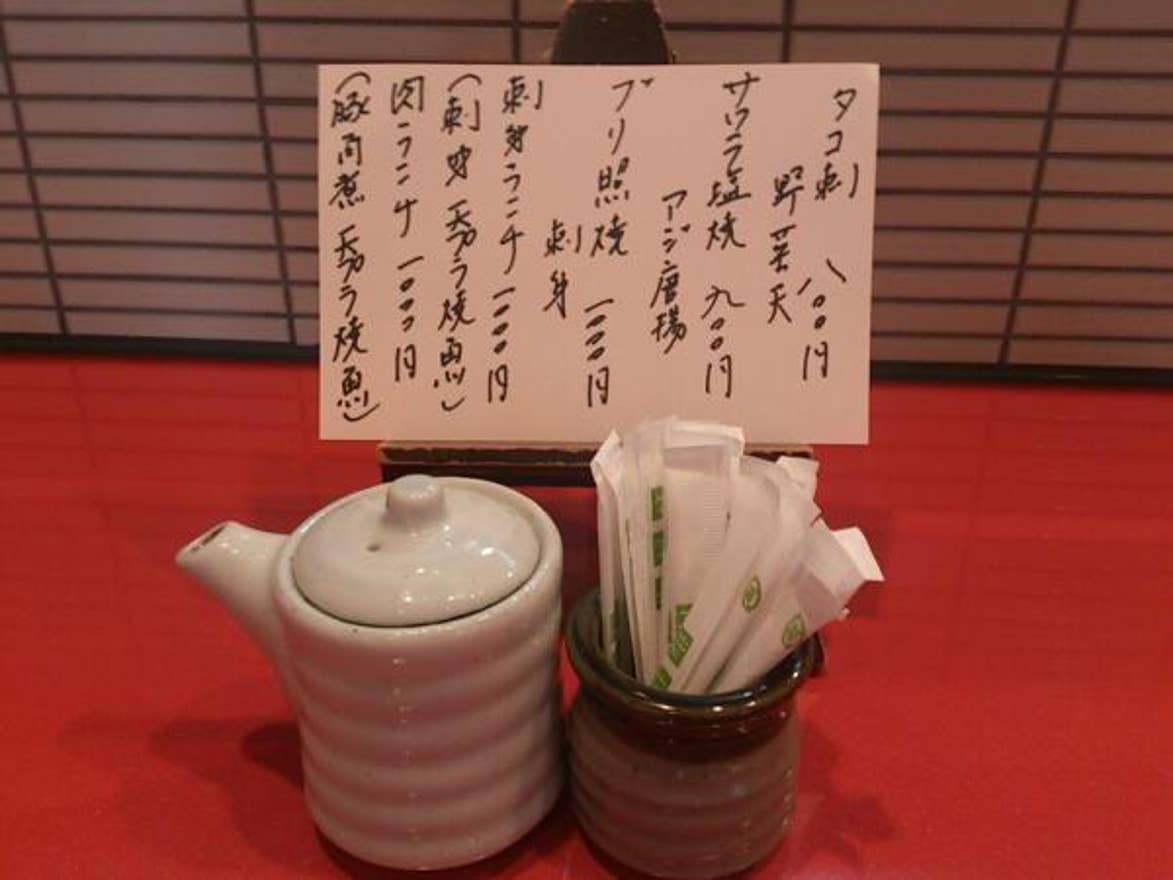 タコ刺 八〇〇円
野菜天
サワラ塩焼 九〇〇円
アジ唐揚
ブリ照焼 一〇〇〇円
刺身
刺身ランチ 一〇〇〇円
(刺身 天プラ 焼魚)
肉ランチ 一〇〇〇円
(豚角煮 天プラ 焼魚)